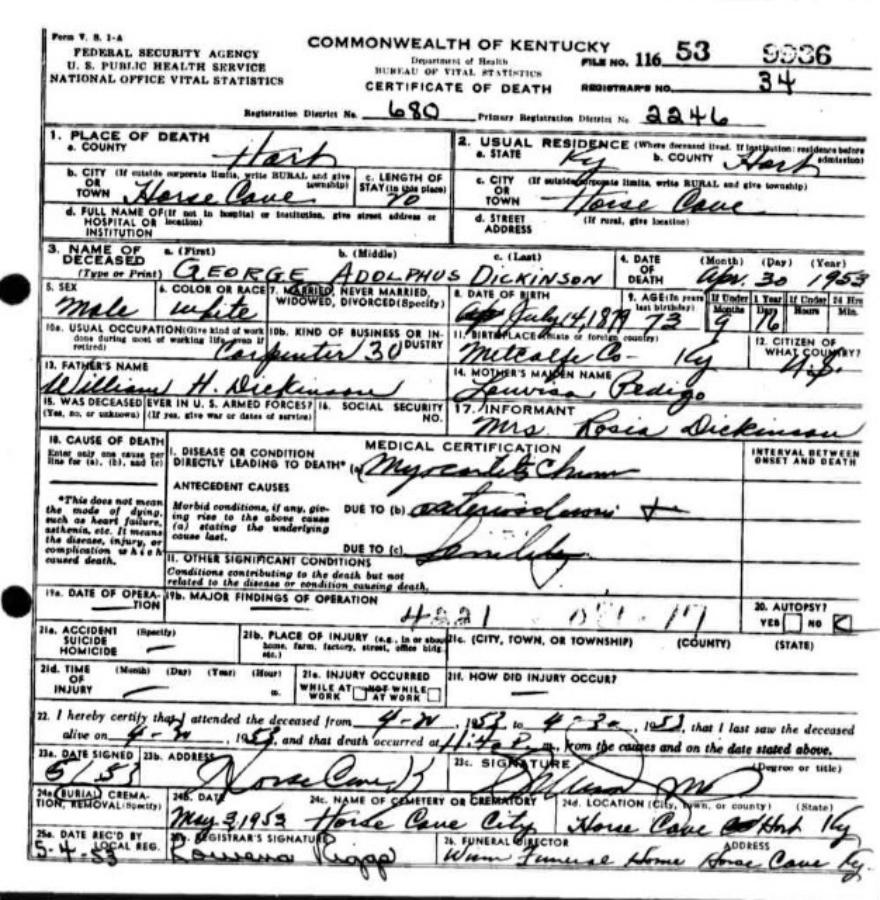 Form V. S. 1-A
FEDERAL SECURITY AGENCY
U. S. PUBLIC HEALTH SERVICE
NATIONAL OFFICE VITAL STATISTICS
COMMONWEALTH OF KENTUCKY
Department of Health
BUREAU OF VITAL STATISTICS
CERTIFICATE OF DEATH
FILE NO. 116 53 9936
REGISTRAR'S NO. 34
Registration District No. 680 Primary Registration District No 2246
1. PLACE OF DEATH
a. COUNTY Hart
2. USUAL RESIDENCE (Where deceased lived. If institution: residence before admission)
a. STATE Ky b. COUNTY Hart
b. CITY (If outside corporate limits, write RURAL and give township)
OR TOWN Horse Cave
c. LENGTH OF STAY (in this place) 70
c. CITY (If outside corporate limits, write RURAL and give township)
OR TOWN Horse Cave
d. FULL NAME OF (If not in hospital or institution, give street address or location)
HOSPITAL OR INSTITUTION
d. STREET ADDRESS (If rural, give location)
3. NAME OF DECEASED (Type or Print)
a. (First) b. (Middle) c. (Last)
GEORGE ADOLPHUS DICKINSON
4. DATE OF DEATH (Month) (Day) (Year)
Apr. 30 1953
5. SEX
Male
6. COLOR OR RACE
white
7. MARRIED, NEVER MARRIED, WIDOWED, DIVORCED (Specify)
8. DATE OF BIRTH
July 14, 1879
9. AGE (In years last birthday) 73
If Under 1 Year Months 9 Days 16
If Under 24 Hrs Hours Min.
10a. USUAL OCCUPATION (Give kind of work done during most of working life, even if retired)
Carpenter 30
10b. KIND OF BUSINESS OR INDUSTRY
11. BIRTHPLACE (State or foreign country)
Metcalfe Co- Ky
12. CITIZEN OF WHAT COUNTRY?
U.S.
13. FATHER'S NAME
William H. Dickinson
14. MOTHER'S MAIDEN NAME
Louvisa Pedigo
15. WAS DECEASED EVER IN U. S. ARMED FORCES?
(Yes, no, or unknown) (If yes, give war or dates of service)
16. SOCIAL SECURITY NO.
17. INFORMANT
Mrs. Rosia Dickinson
18. CAUSE OF DEATH
Enter only one cause per line for (a), (b), and (c)
*This does not mean the mode of dying, such as heart failure, asthenia, etc. It means the disease, injury, or complication which caused death.
MEDICAL CERTIFICATION
INTERVAL BETWEEN ONSET AND DEATH
I. DISEASE OR CONDITION DIRECTLY LEADING TO DEATH* (a) Myocarditis
ANTECEDENT CAUSES
Morbid conditions, if any, giving rise to the above cause (a) stating the underlying cause last.
DUE TO (b) +
DUE TO (c) Senility
II. OTHER SIGNIFICANT CONDITIONS
Conditions contributing to the death but not related to the disease or condition causing death.
19a. DATE OF OPERATION
19b. MAJOR FINDINGS OF OPERATION
4221
20. AUTOPSY?
YES NO
21a. ACCIDENT SUICIDE HOMICIDE (Specify)
21b. PLACE OF INJURY (e.g., in or about home, farm, factory, street, office bldg. etc.)
21c. (CITY, TOWN, OR TOWNSHIP) (COUNTY) (STATE)
21d. TIME OF INJURY (Month) (Day) (Year) (Hour) m.
21e. INJURY OCCURRED
WHILE AT WORK NOT WHILE AT WORK
21f. HOW DID INJURY OCCUR?
22. I hereby certify that I attended the deceased from 1953, to 4-30, 1953, that I last saw the deceased
alive on 1953, and that death occurred at 11:40 P.m., from the causes and on the date stated above.
23a. DATE SIGNED
5/ 53
23b. ADDRESS
Horse Cave K
23c. SIGNATURE (Degree or title)
MD
24a. BURIAL, CREMATION, REMOVAL (Specify)
24b. DATE
May 3, 1953
24c. NAME OF CEMETERY OR CREMATORY
Horse Cave City
24d. LOCATION (City, town, or county) (State)
Horse Cave Hart Ky
25a. DATE REC'D BY LOCAL REG.
5-4-53
25b. REGISTRAR'S SIGNATURE
Rowena Riggs
26. FUNERAL DIRECTOR ADDRESS
Winn Funeral Home Horse Cave Ky.